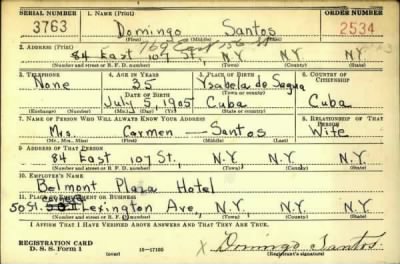 SERIAL NUMBER 1. NAME (Print) ORDER NUMBER
3763 Domingo Santos 2534
(First) (Middle) (Last)
2. ADDRESS (Print) 169 East 106 St
84 East 107 St., N.Y. N.Y.
(Number and street or R. F. D. number) (Town) (County) (State)
3. TELEPHONE 4. AGE IN YEARS 5. PLACE OF BIRTH 6. COUNTRY OF CITIZENSHIP
None 35 Ysabela de Sagua
DATE OF BIRTH (Town or county)
July 5, 1905 Cuba Cuba
(Exchange) (Number) (Mo.) (Day) (Yr.) (State or country)
7. NAME OF PERSON WHO WILL ALWAYS KNOW YOUR ADDRESS 8. RELATIONSHIP OF THAT PERSON
Mrs. Carmen — Santos Wife
(Mr., Mrs., Miss) (First) (Middle) (Last)
9. ADDRESS OF THAT PERSON
84 East 107 St., N.Y. N.Y. N.Y.
(Number and street or R. F. D. number) (Town) (County) (State)
10. EMPLOYER'S NAME
Belmont Plaza Hotel
11. PLACE OF EMPLOYMENT OR BUSINESS
50 St. Lexington Ave., N.Y. N.Y. N.Y.
(Number and street or R. F. D. number) (Town) (County) (State)
I AFFIRM THAT I HAVE VERIFIED ABOVE ANSWERS AND THAT THEY ARE TRUE.
REGISTRATION CARD
D. S. S. Form 1 (over) 16—17105 x Domingo Santos.
(Registrant's signature)